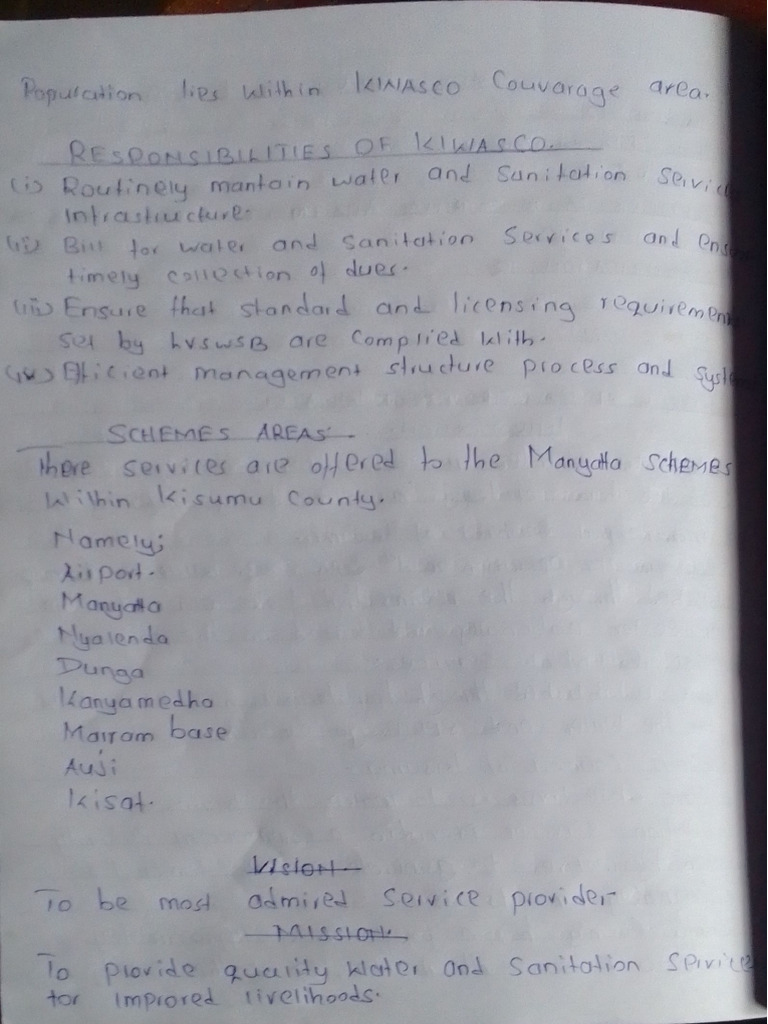 Population lies within KIWASCO Couvarage area.
RESPONSIBILITIES OF KIWASCO.
(i) Routinely mantain water and Sanitation Servic
Infrastructure.
(ii) Bill for water and sanitation Services and ens
timely collection of dues.
(iii) Ensure that standard and licensing requiremen
set by LVSWSB are complied with.
(iv) Efficient management structure process and syst
SCHEMES AREAS.
There services are offered to the Manyatta SCHEMES
Within Kisumu County.
Namely;
Airport.
Manyatta
Nyalenda
Dunga
Kanyamedha
Mairam base
Auji
Kisat.
VISION
To be most admired service provider
MISSION
To provide quality water and Sanitation service
for improved livelihoods.